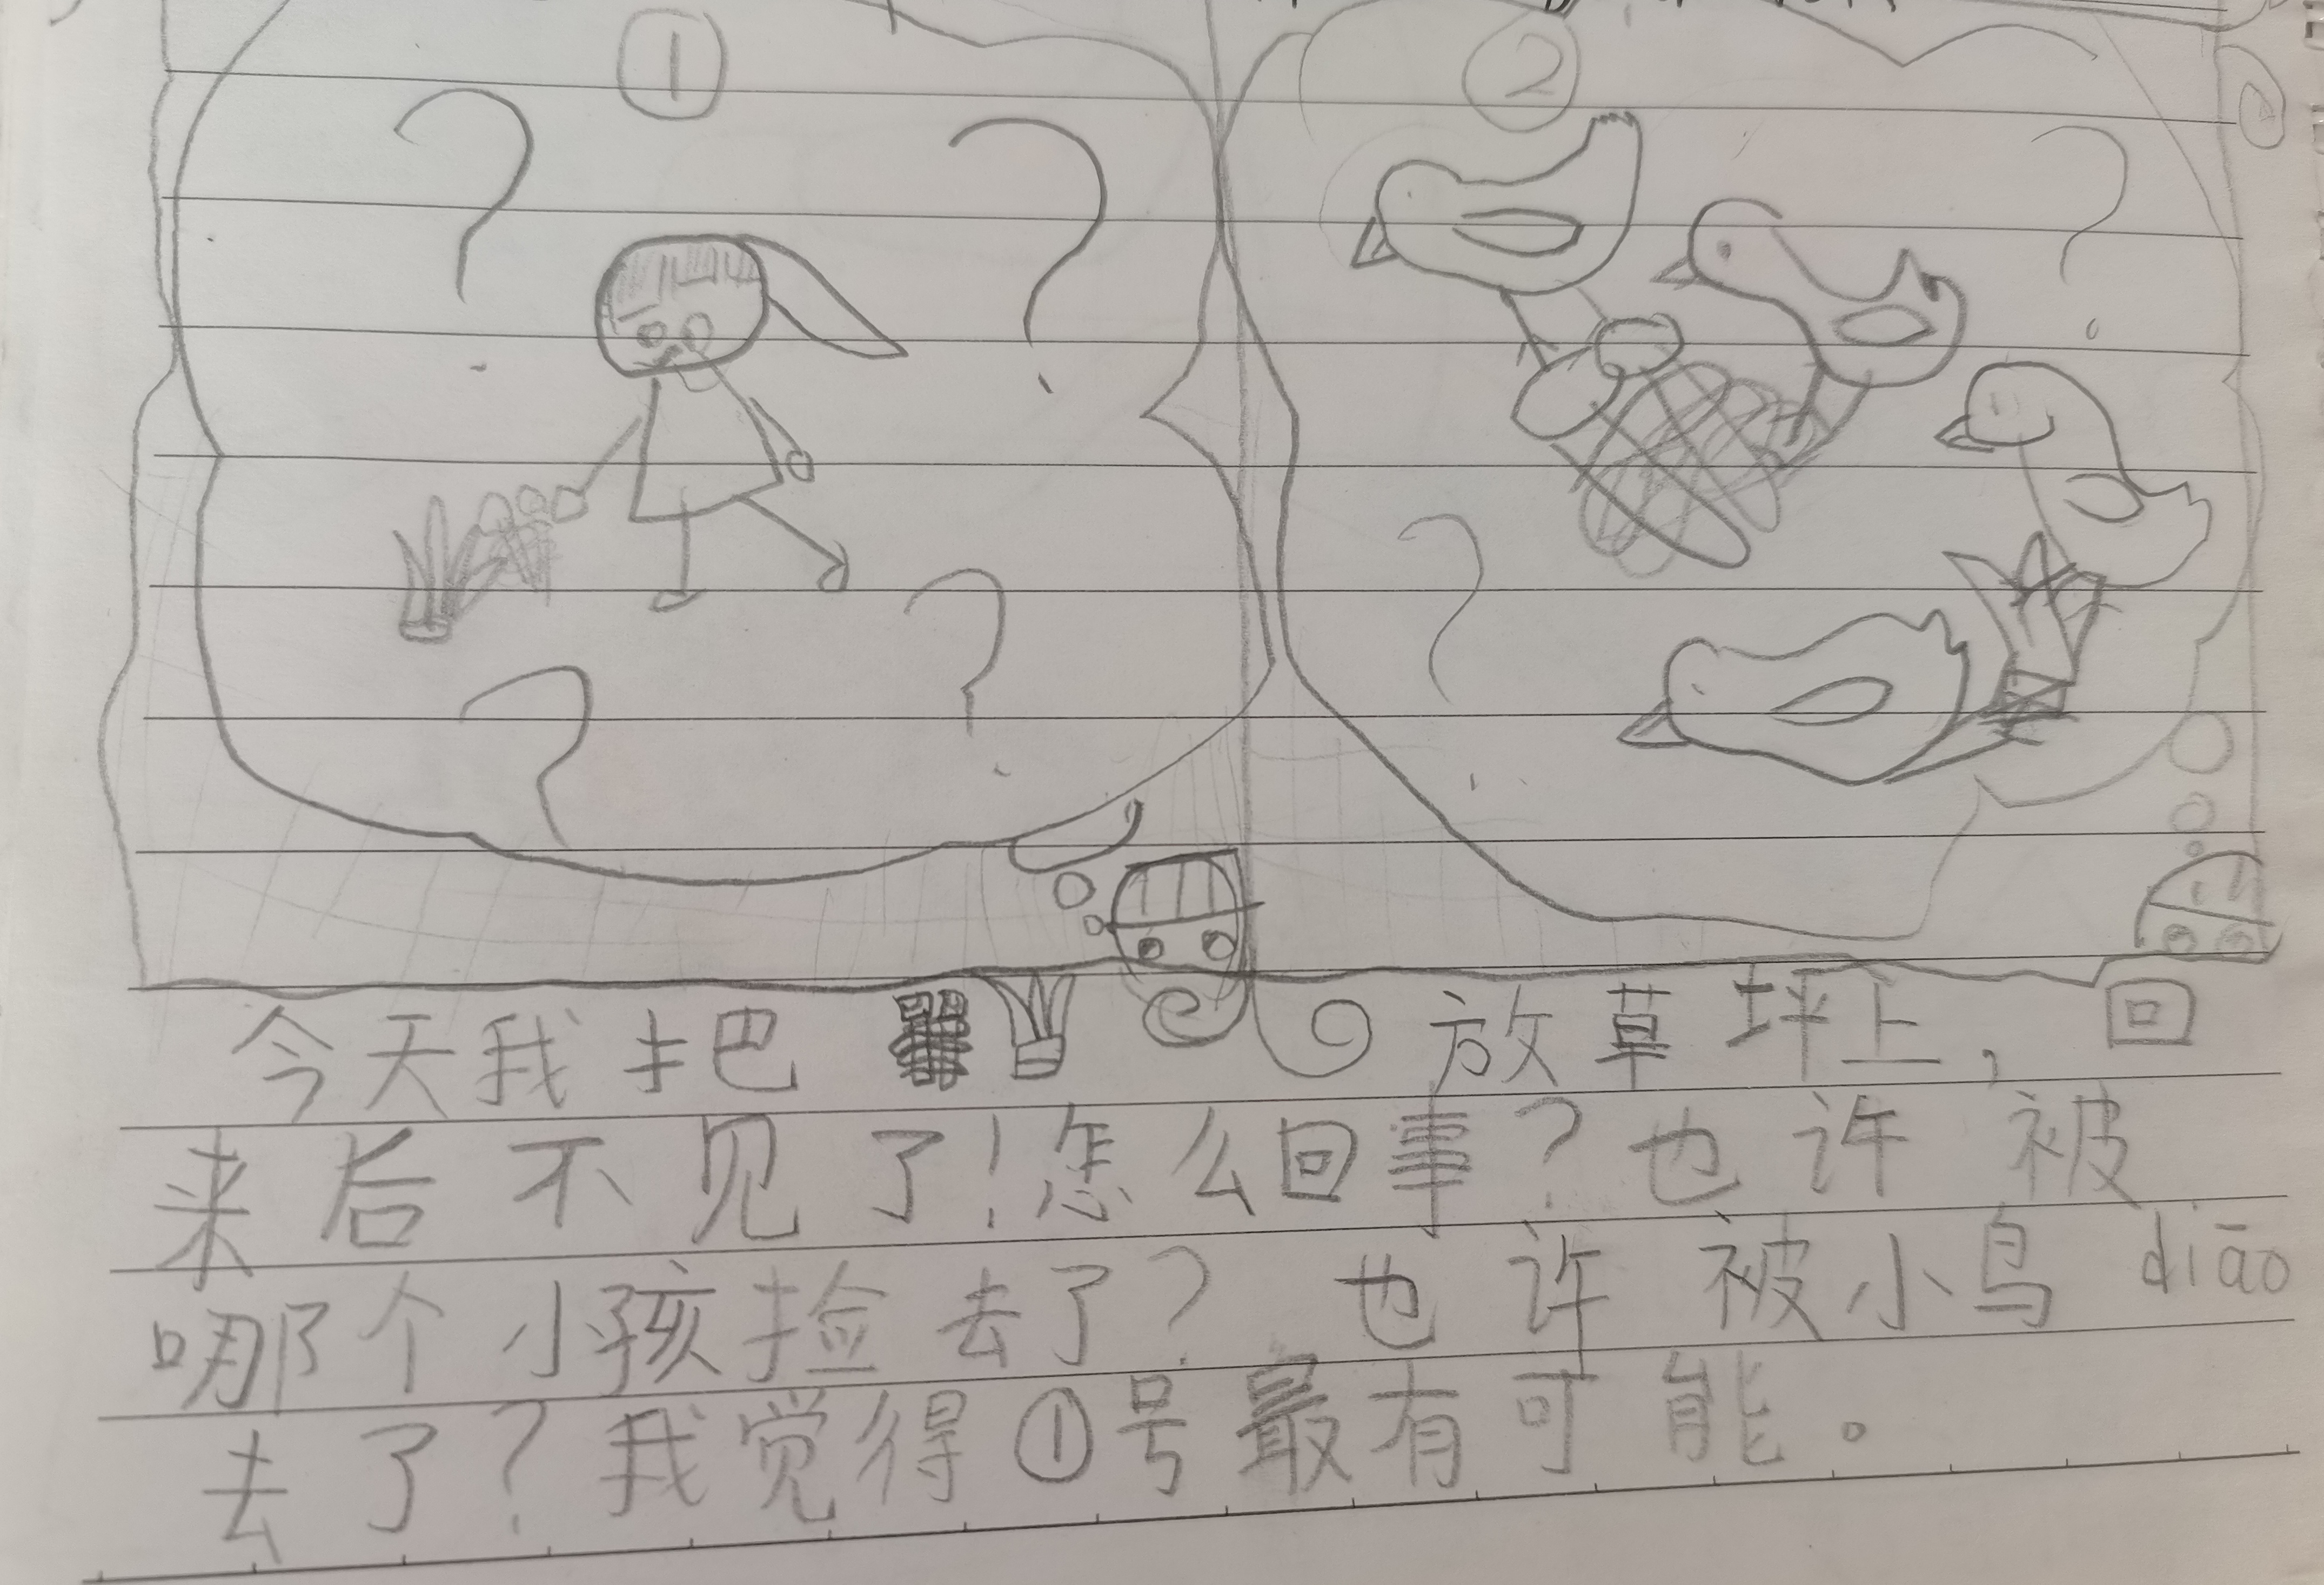 ①
②
今天我把 放草坪上，回
来后不见了！怎么回事？也许被
哪个小孩捡去了？也许被小鸟diāo
去了？我觉得①号最有可能。